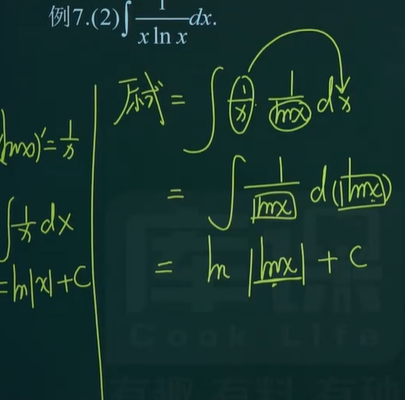 例7.(2)∫ 1/(x ln x) dx.
(lnx)' = 1/x
∫ 1/x dx
= ln|x| + C
原式 = ∫ 1/x · 1/lnx dx
= ∫ 1/lnx d(lnx)
= ln |lnx| + C
库课
Cook Life
有趣 有料 有种